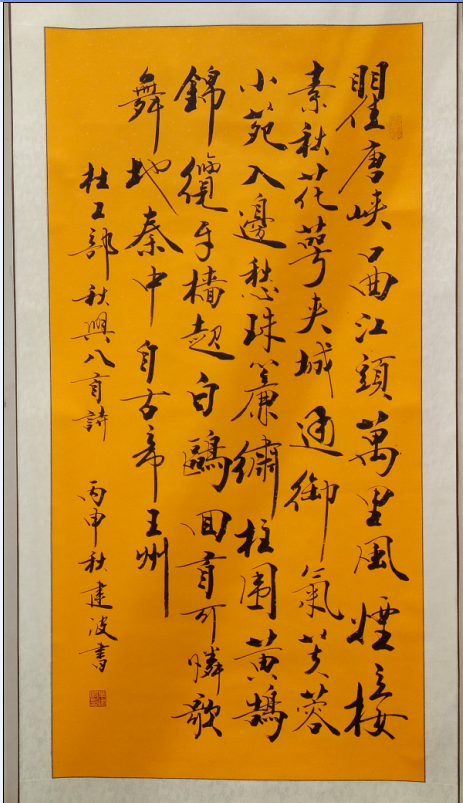 瞿唐峽口曲江頭萬里風煙接
素秋花萼夾城通御氣芙蓉
小苑入邊愁珠簾繡柱圍黃鵠
錦纜牙檣起白鷗回首可憐歌
舞地秦中自古帝王州
杜工部秋興八首詩 丙申秋建波書